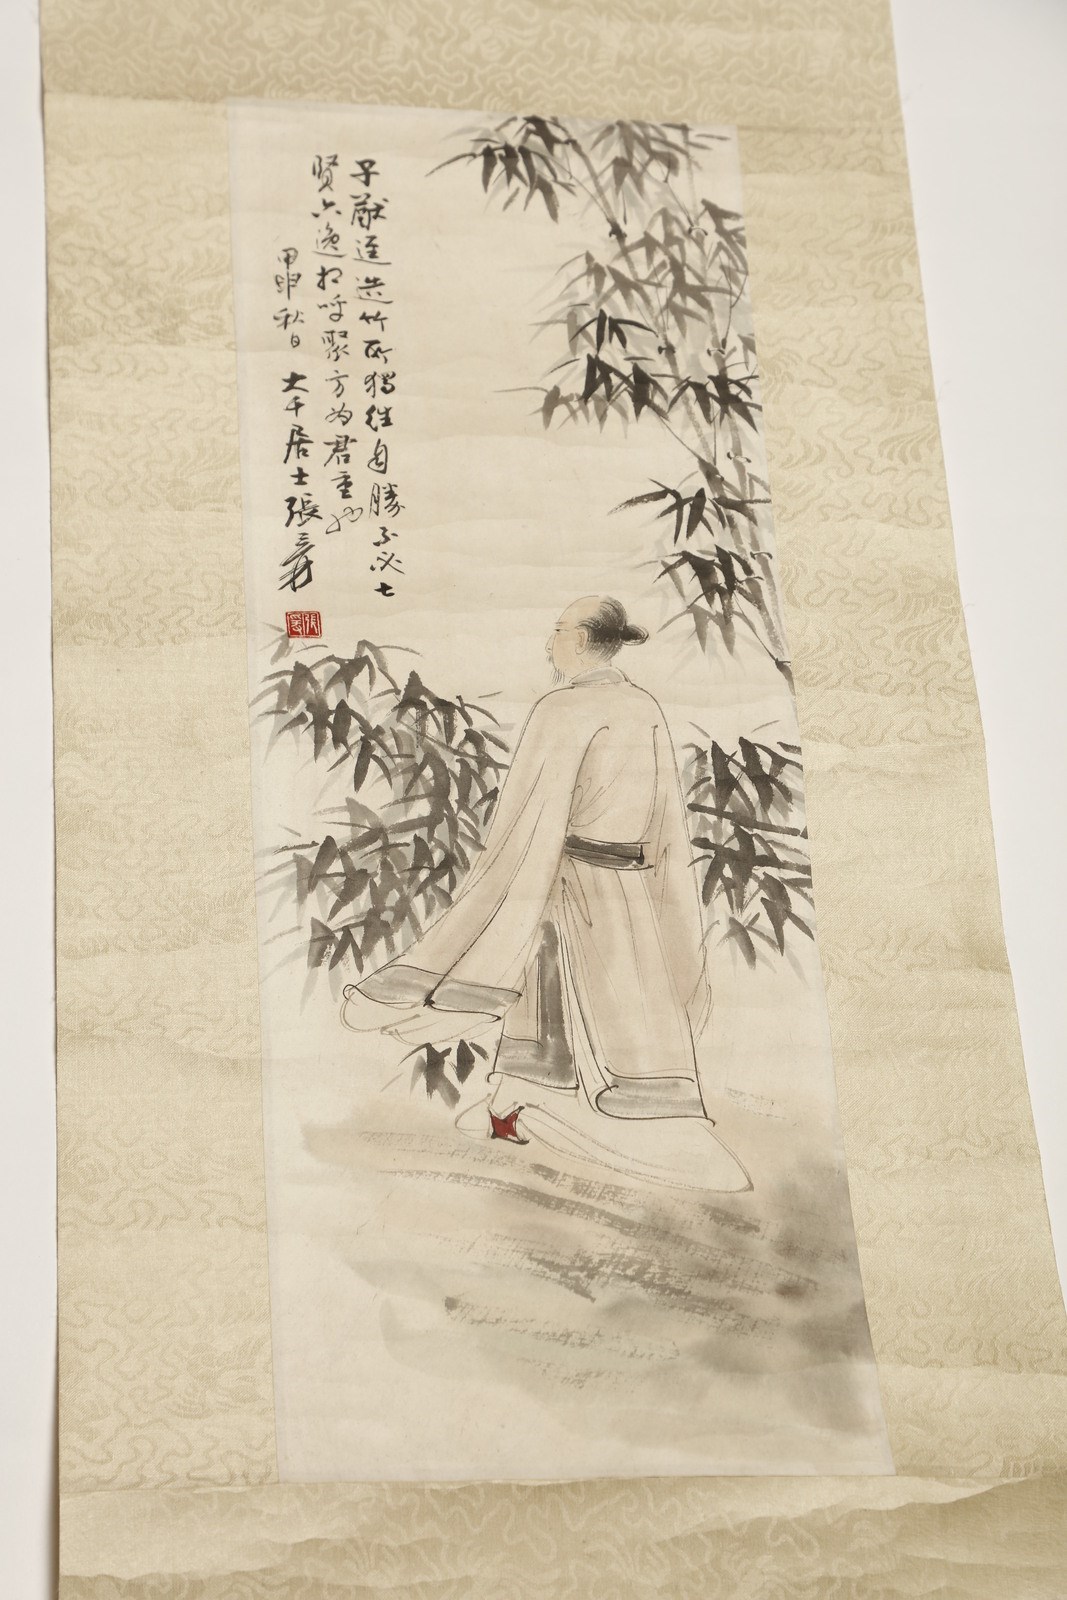 子猷迳造竹所獨往自勝不必七
賢六逸相呼聚方為君重也
甲申秋日 大千居士張爰
張爰